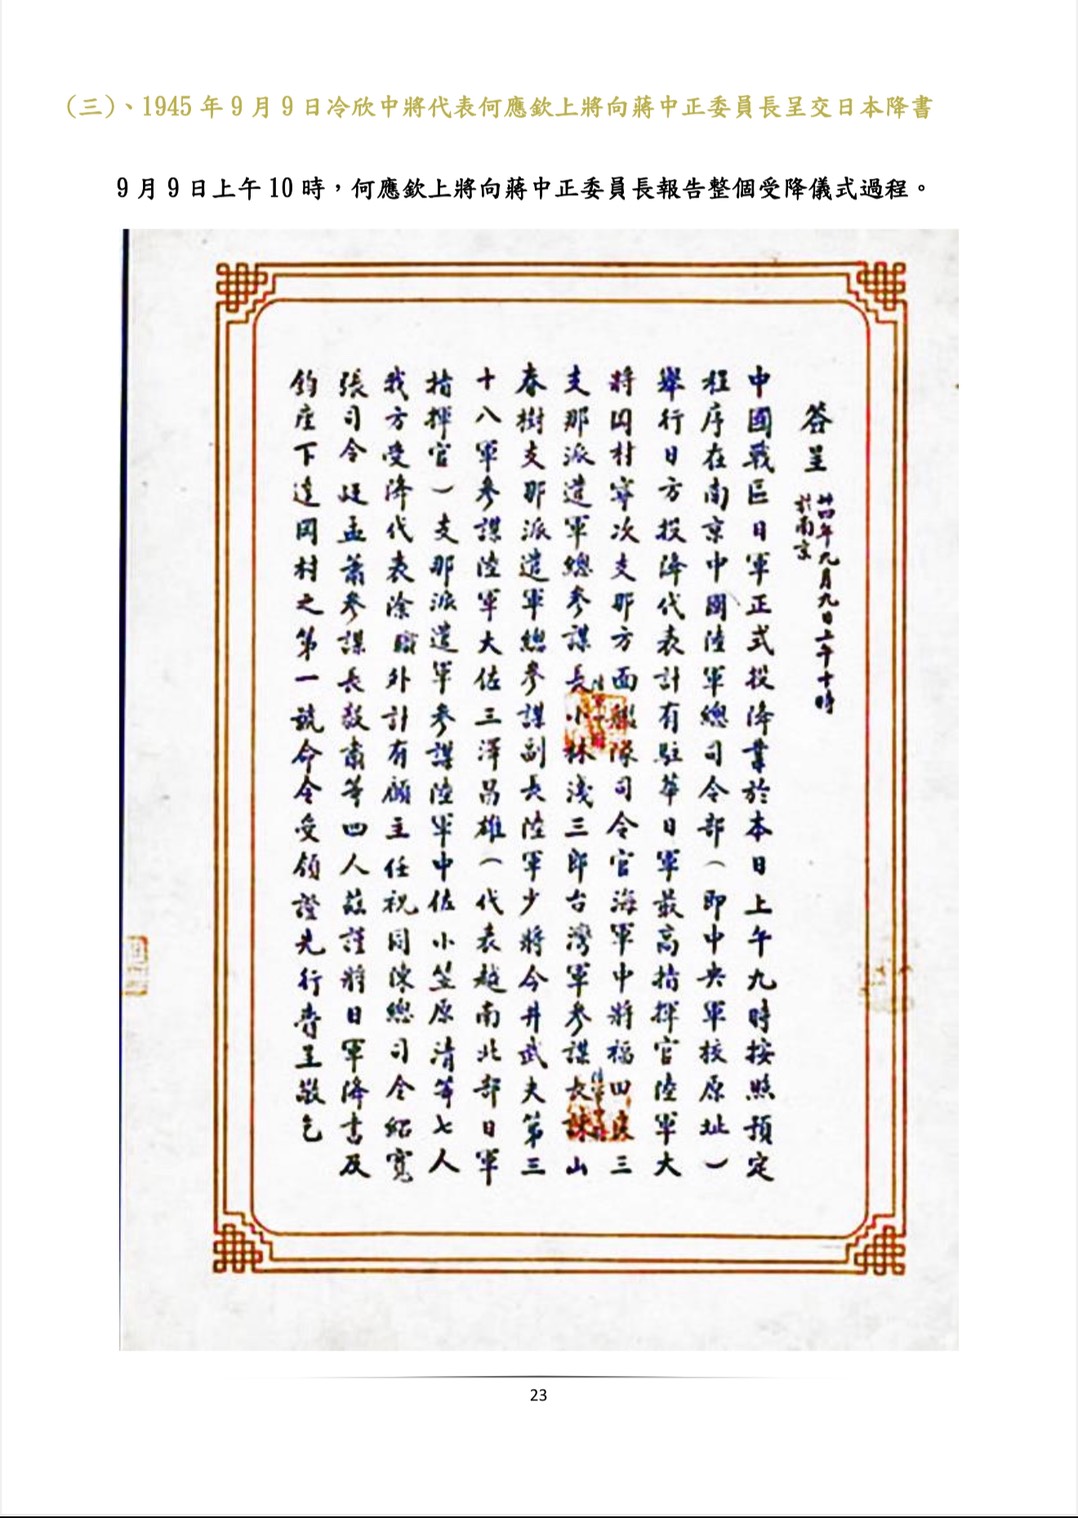 (三)、1945 年 9 月 9 日冷欣中將代表何應欽上將向蔣中正委員長呈交日本降書
9 月 9 日上午 10 時，何應欽上將向蔣中正委員長報告整個受降儀式過程。
簽呈 卅四年九月九日上午十時
於南京
中國戰區日軍正式投降業於本日上午九時按照預定
程序在南京中國陸軍總司令部（即中央軍校原址）
舉行日方投降代表計有駐華日軍最高指揮官陸軍大
將岡村寧次支那方面艦隊司令官海軍中將福田良三
支那派遣軍總參謀長小林淺三郎台灣軍參謀長諫山
春樹支那派遣軍總參謀副長陸軍少將今井武夫第三
十八軍參謀陸軍大佐三澤昌雄（代表越南北部日軍
指揮官）支那派遣軍參謀陸軍中佐小笠原清等七人
我方受降代表除職外計有顧主任祝同陳總司令紹寬
張司令廷孟蕭參謀長毅肅等四人茲謹將日軍降書及
鈞座下達岡村之第一號命令受領證先行賫呈敬乞
23